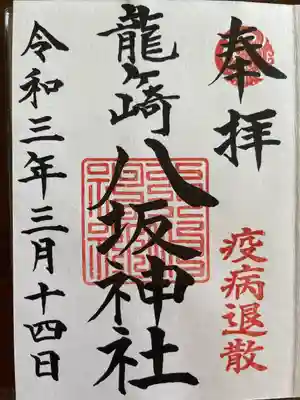 奉拝
疫病退散
龍ヶ崎八坂神社
令和三年三月十四日